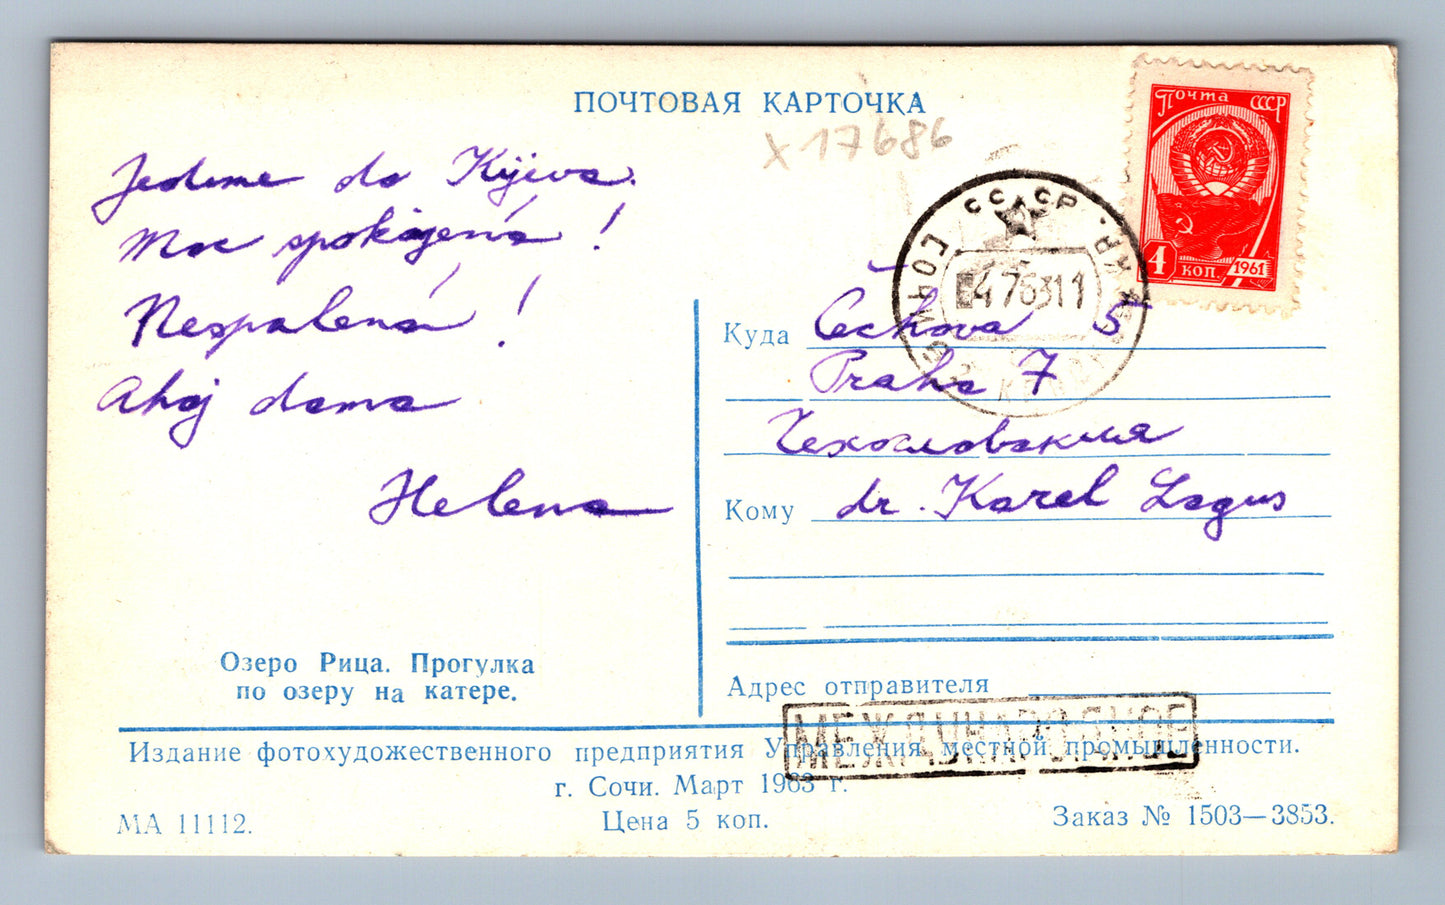 ПОЧТОВАЯ КАРТОЧКА
x 17686
Почта СССР
4 коп. 1961
СССР
СОЧИ
476311
Jedeme do Kyjeva.
Moc spokojená!
Nespálená!
Ahoj doma
Helena
Куда Čechova 5
Praha 7
Чехословакия
Кому dr. Karel Lagus
Озеро Рица. Прогулка
по озеру на катере.
Адрес отправителя
МЕЖДУНАРОДНОЕ
Издание фотохудожественного предприятия Управления местной промышленности.
г. Сочи. Март 1963 г.
МА 11112.
Цена 5 коп.
Заказ № 1503—3853.